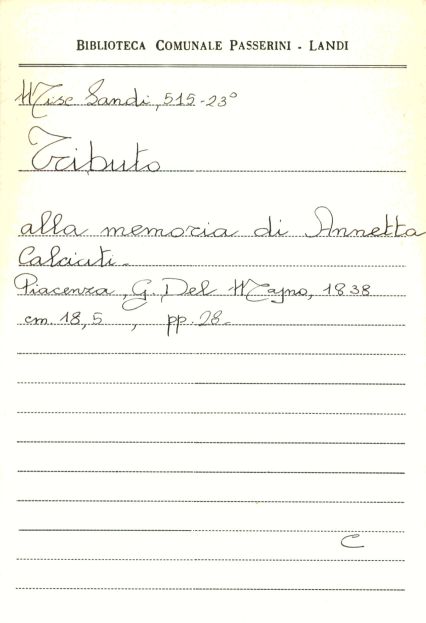 BIBLIOTECA COMUNALE PASSERINI - LANDI
Misc Landi, 515-23°
Tributo
alla memoria di Annetta
Calciati.
Piacenza, G. Del Majno, 1838
cm. 18,5 , pp. 28.
C